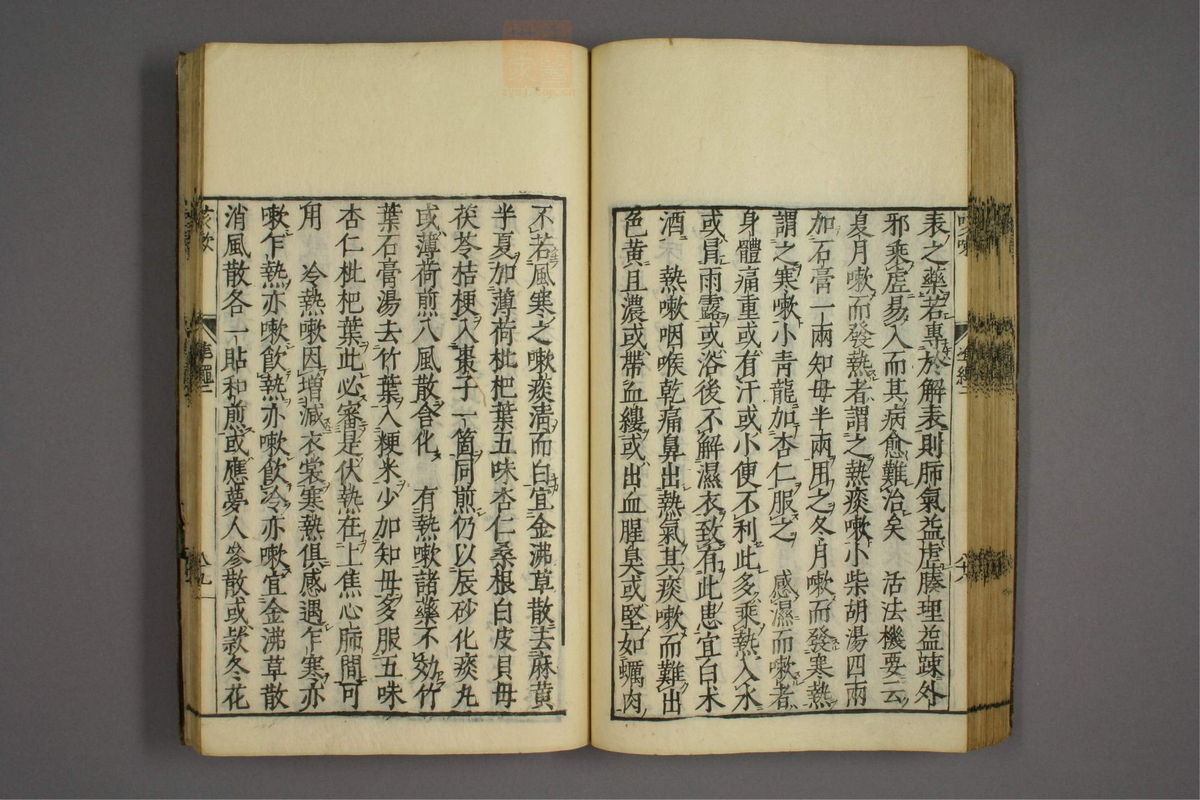 表之藥若專於解表則肺氣益虛腠理益踈外
邪乘虛易入而其病愈難治矣　活法機要云
夏月嗽而發熱者謂之熱痰嗽小柴胡湯四兩
加石膏一兩知母半兩用之冬月嗽而發寒熱
謂之寒嗽小青龍加杏仁服之　感濕而嗽者
身體痛重或有汗或小便不利此多乘熱入水
或冒雨露或浴後不解濕衣致有此患宜白术
酒　熱嗽咽喉乾痛鼻出熱氣其痰嗽而難出
色黃且濃或帶血縷或出血腥臭或堅如蠣肉
不若風寒之嗽痰清而白宜金沸草散去麻黃
半夏加薄荷枇杷葉五味杏仁桑根白皮貝母
茯苓桔梗入棗子一箇同煎仍以辰砂化痰丸
或薄荷煎八風散含化　有熱嗽諸藥不効竹
葉石膏湯去竹葉入粳米少加知母多服五味
杏仁枇杷葉此必審是伏熱在上焦心肺間可
用　冷熱嗽因增減衣裳寒熱俱感遇乍寒亦
嗽乍熱亦嗽飲熱亦嗽飲冷亦嗽宜金沸草散
消風散各一貼和煎或應夢人參散或款冬花
咳嗽
準繩二
八九